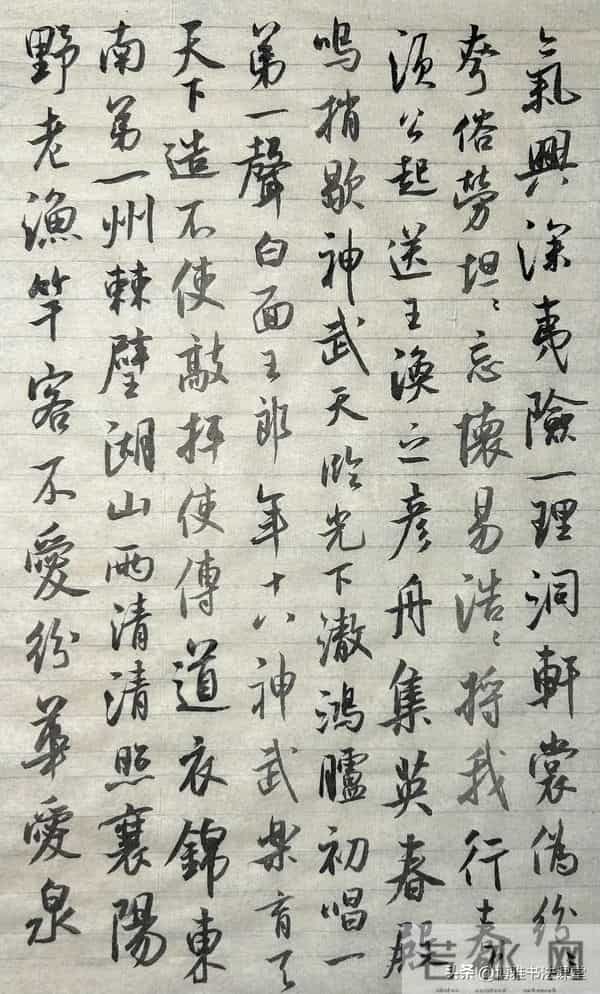 氣興深夷險一理洞軒裳偽紛〻
夸俗勞坦〻忘懷易浩〻捋我行
須公起送王渙之彥舟集英春殿
鳴捎歇神武天臨光下澈鴻臚初唱一
第一聲白面王郎年十八神武樂育
天下造不使敲抨使傳道衣錦東
南第一州棘璧湖山兩清清照襄陽
野老漁竿客不愛紛華愛泉
头条@博雅书法课堂